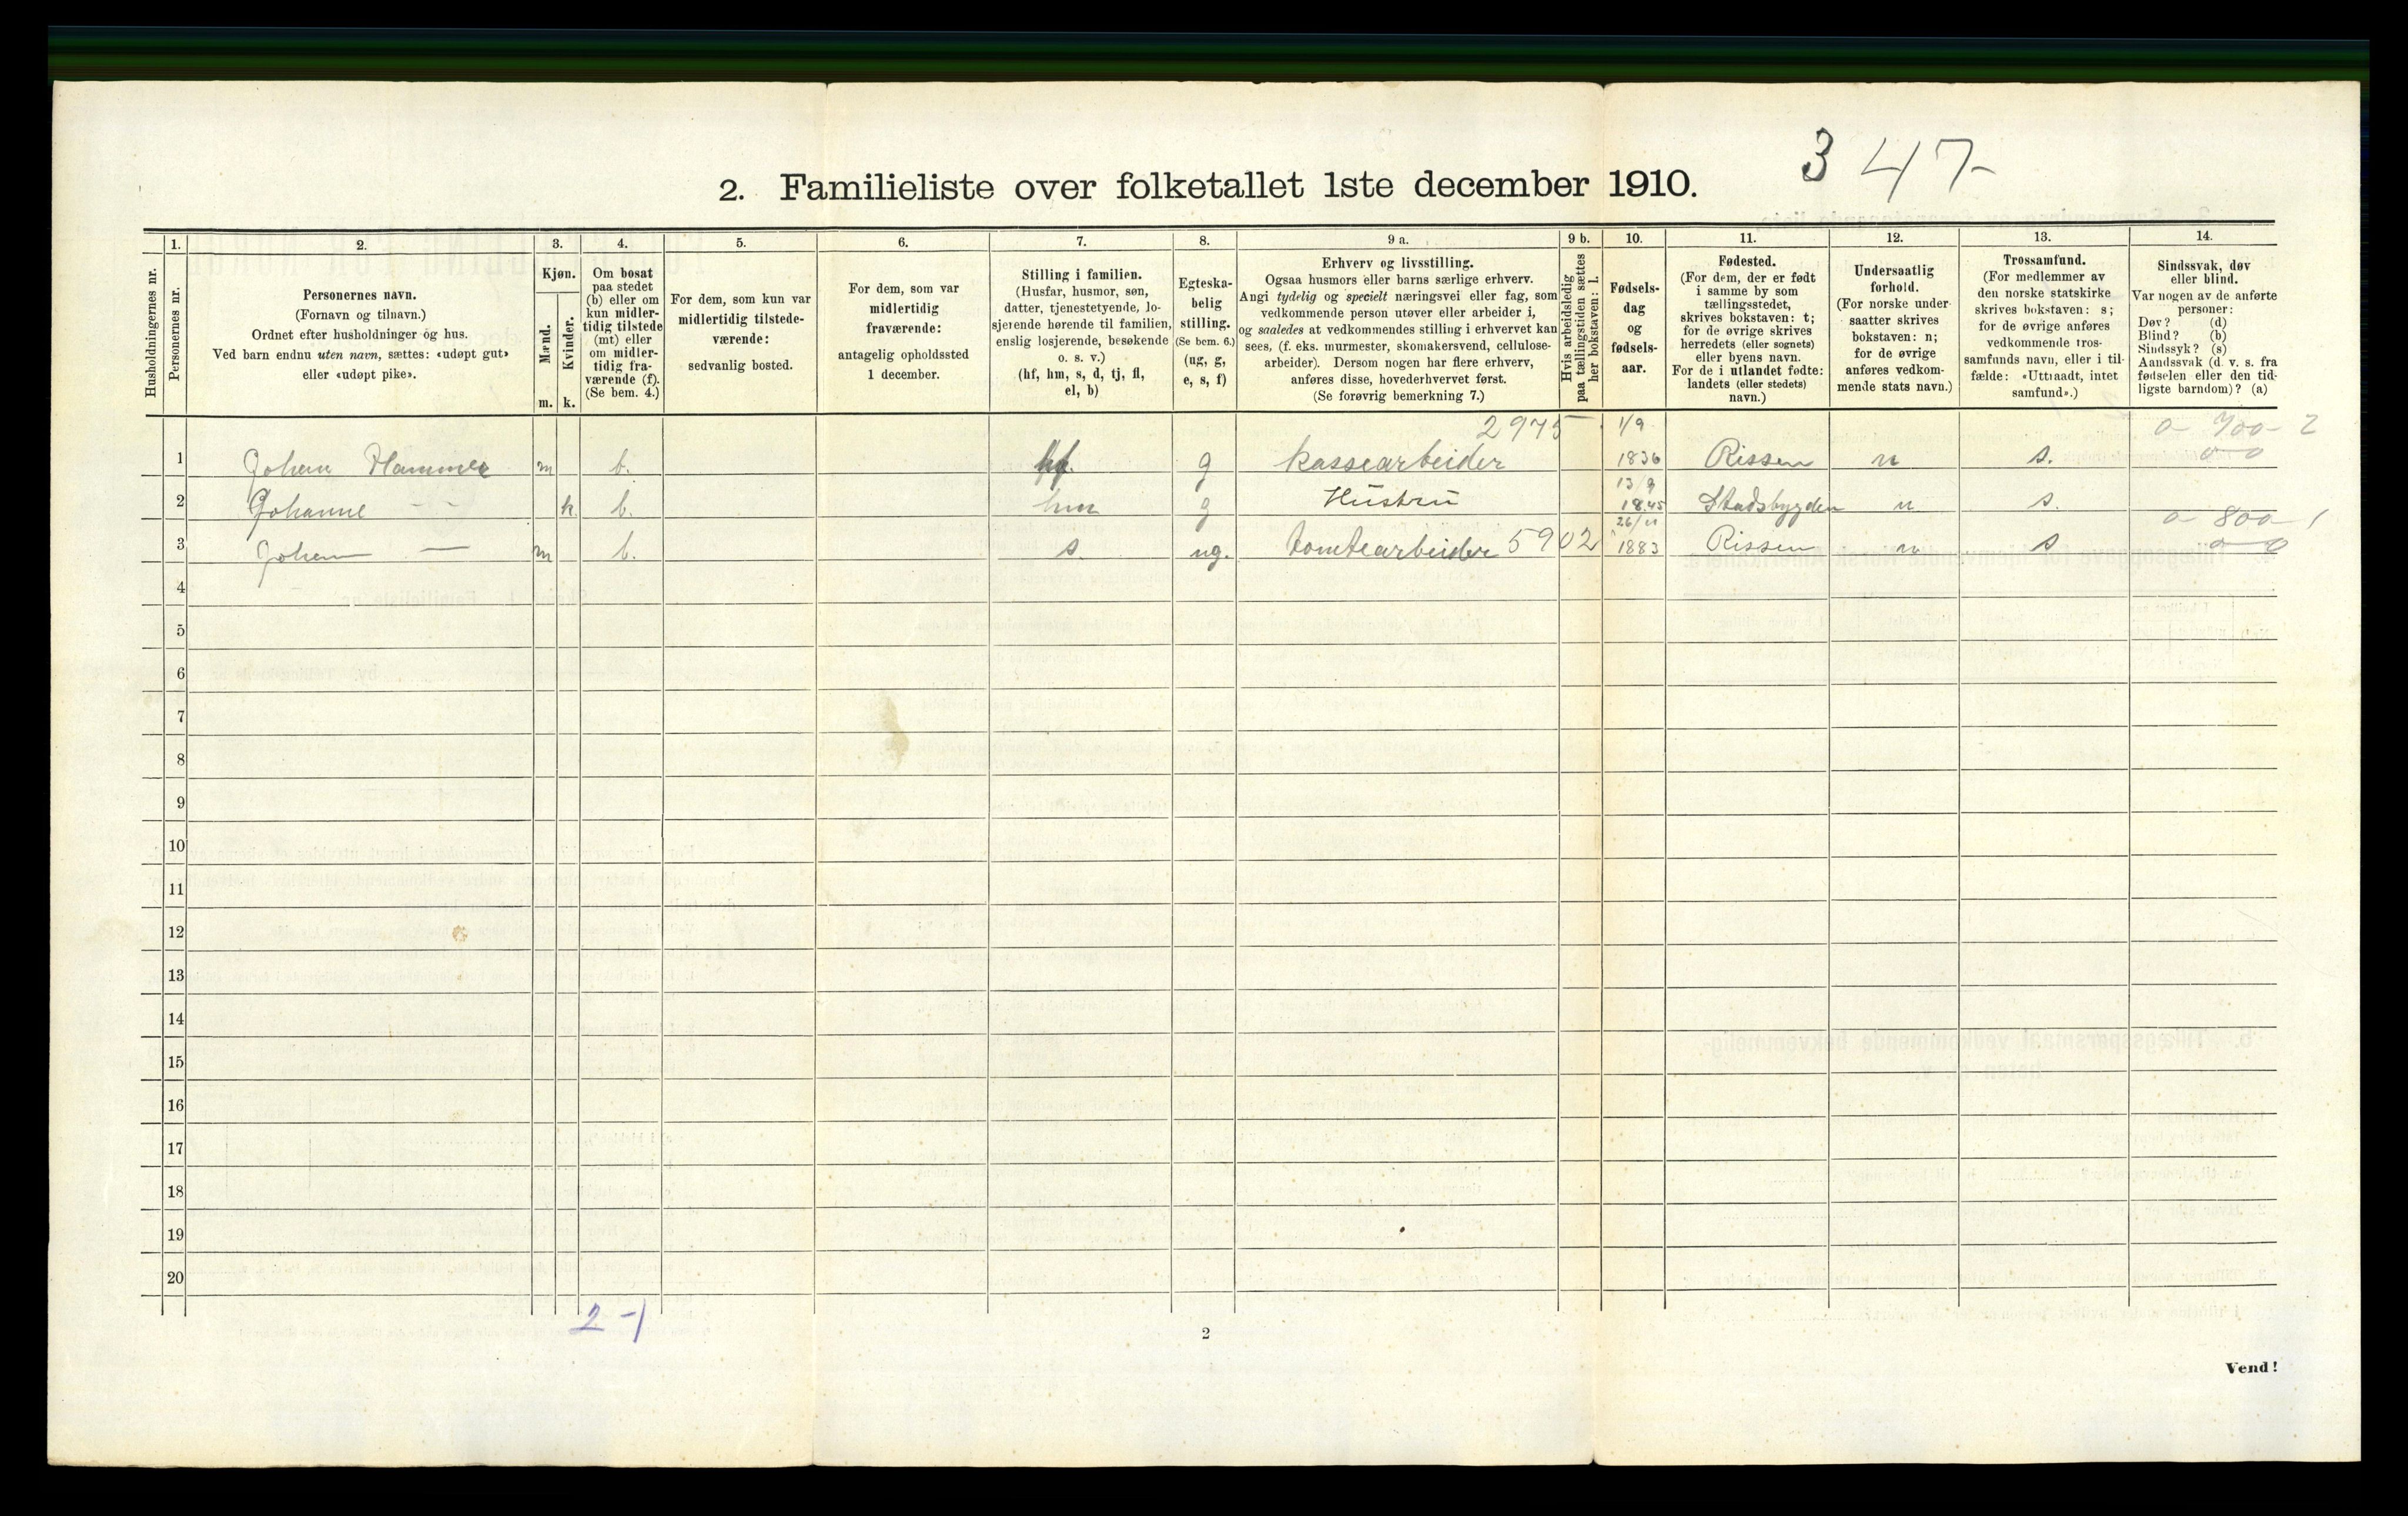 347
2. Familieliste over folketallet 1ste december 1910.
Husholdningernes nr.
1.
Personernes nr.
2.
Personernes navn.
(Fornavn og tilnavn.)
Ordnet efter husholdninger og hus.
Ved barn endnu uten navn, sættes: «udøpt gut»
eller «udøpt pike».
3.
Kjøn.
Mænd.
Kvinder.
m. k.
4.
Om bosat
paa stedet
(b) eller om
kun midler-
tidig tilstede
(mt) eller
om midler-
tidig fra-
værende (f).
(Se bem. 4.)
5.
For dem, som kun var
midlertidig tilstede-
værende:
sedvanlig bosted.
6.
For dem, som var
midlertidig
fraværende:
antagelig opholdssted
1 december.
7.
Stilling i familien.
(Husfar, husmor, søn,
datter, tjenestetyende, lo-
sjerende hørende til familien,
enslig losjerende, besøkende
o. s. v.)
(hf, hm, s, d, tj, fl,
el, b)
8.
Egteska-
belig
stilling.
(Se bem. 6.)
(ug, g,
e, s, f)
9 a.
Erhverv og livsstilling.
Ogsaa husmors eller barns særlige erhverv.
Angi tydelig og specielt næringsvei eller fag, som
vedkommende person utøver eller arbeider i,
og saaledes at vedkommendes stilling i erhvervet kan
sees, (f. eks. murmester, skomakersvend, cellulose-
arbeider). Dersom nogen har flere erhverv,
anføres disse, hovederhvervet først.
(Se forøvrig bemerkning 7.)
9 b.
Hvis arbeidsledig
paa tællingstiden sættes
her bokstaven: l.
10.
Fødsels-
dag
og
fødsels-
aar.
11.
Fødested.
(For dem, der er født
i samme by som
tællingsstedet,
skrives bokstaven: t;
for de øvrige skrives
herredets (eller sognets)
eller byens navn.
For de i utlandet fødte:
landets (eller stedets)
navn.)
12.
Undersaatlig
forhold.
(For norske under-
saatter skrives
bokstaven: n;
for de øvrige
anføres vedkom-
mende stats navn.)
13.
Trossamfund.
(For medlemmer av
den norske statskirke
skrives bokstaven: s;
for de øvrige anføres
vedkommende tros-
samfunds navn, eller i til-
fælde: «Uttraadt, intet
samfund».)
14.
Sindssvak, døv
eller blind.
Var nogen av de anførte
personer:
Døv? (d)
Blind? (b)
Sindssyk? (s)
Aandssvak (d. v. s. fra
fødselen eller den tid-
ligste barndom)? (a)
2975 1/9 0 - 700 - 2
1 Johan Hammer m b. hf. g kassearbeider 1836 Rissen n s. 0 0
13/9
2 Johanne - - k b. hm g Hustru 1845 Stadsbygden n s.
26/11 0 - 800 - 1
3 Johan — m b. s. ug. tomtearbeider 5902 1883 Rissen n s 0 0
4
5
6
7
8
9
10
11
12
13
14
15
16
17
18
19
20
2-1
2
Vend!